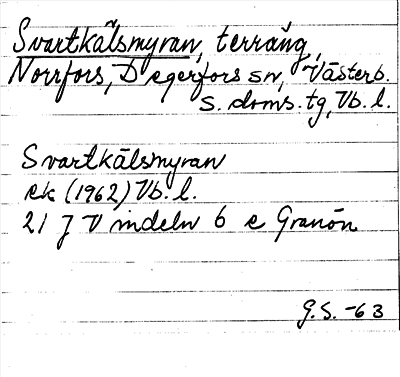 Svartkålsmyran, terräng,
Norrfors, Degerfors sn, Västerb.
s. doms. tg, Vb. l.
Svartkålsmyran
ek (1962) Vb. l.
21 J Vindeln 6 c Granön
G.S. -63